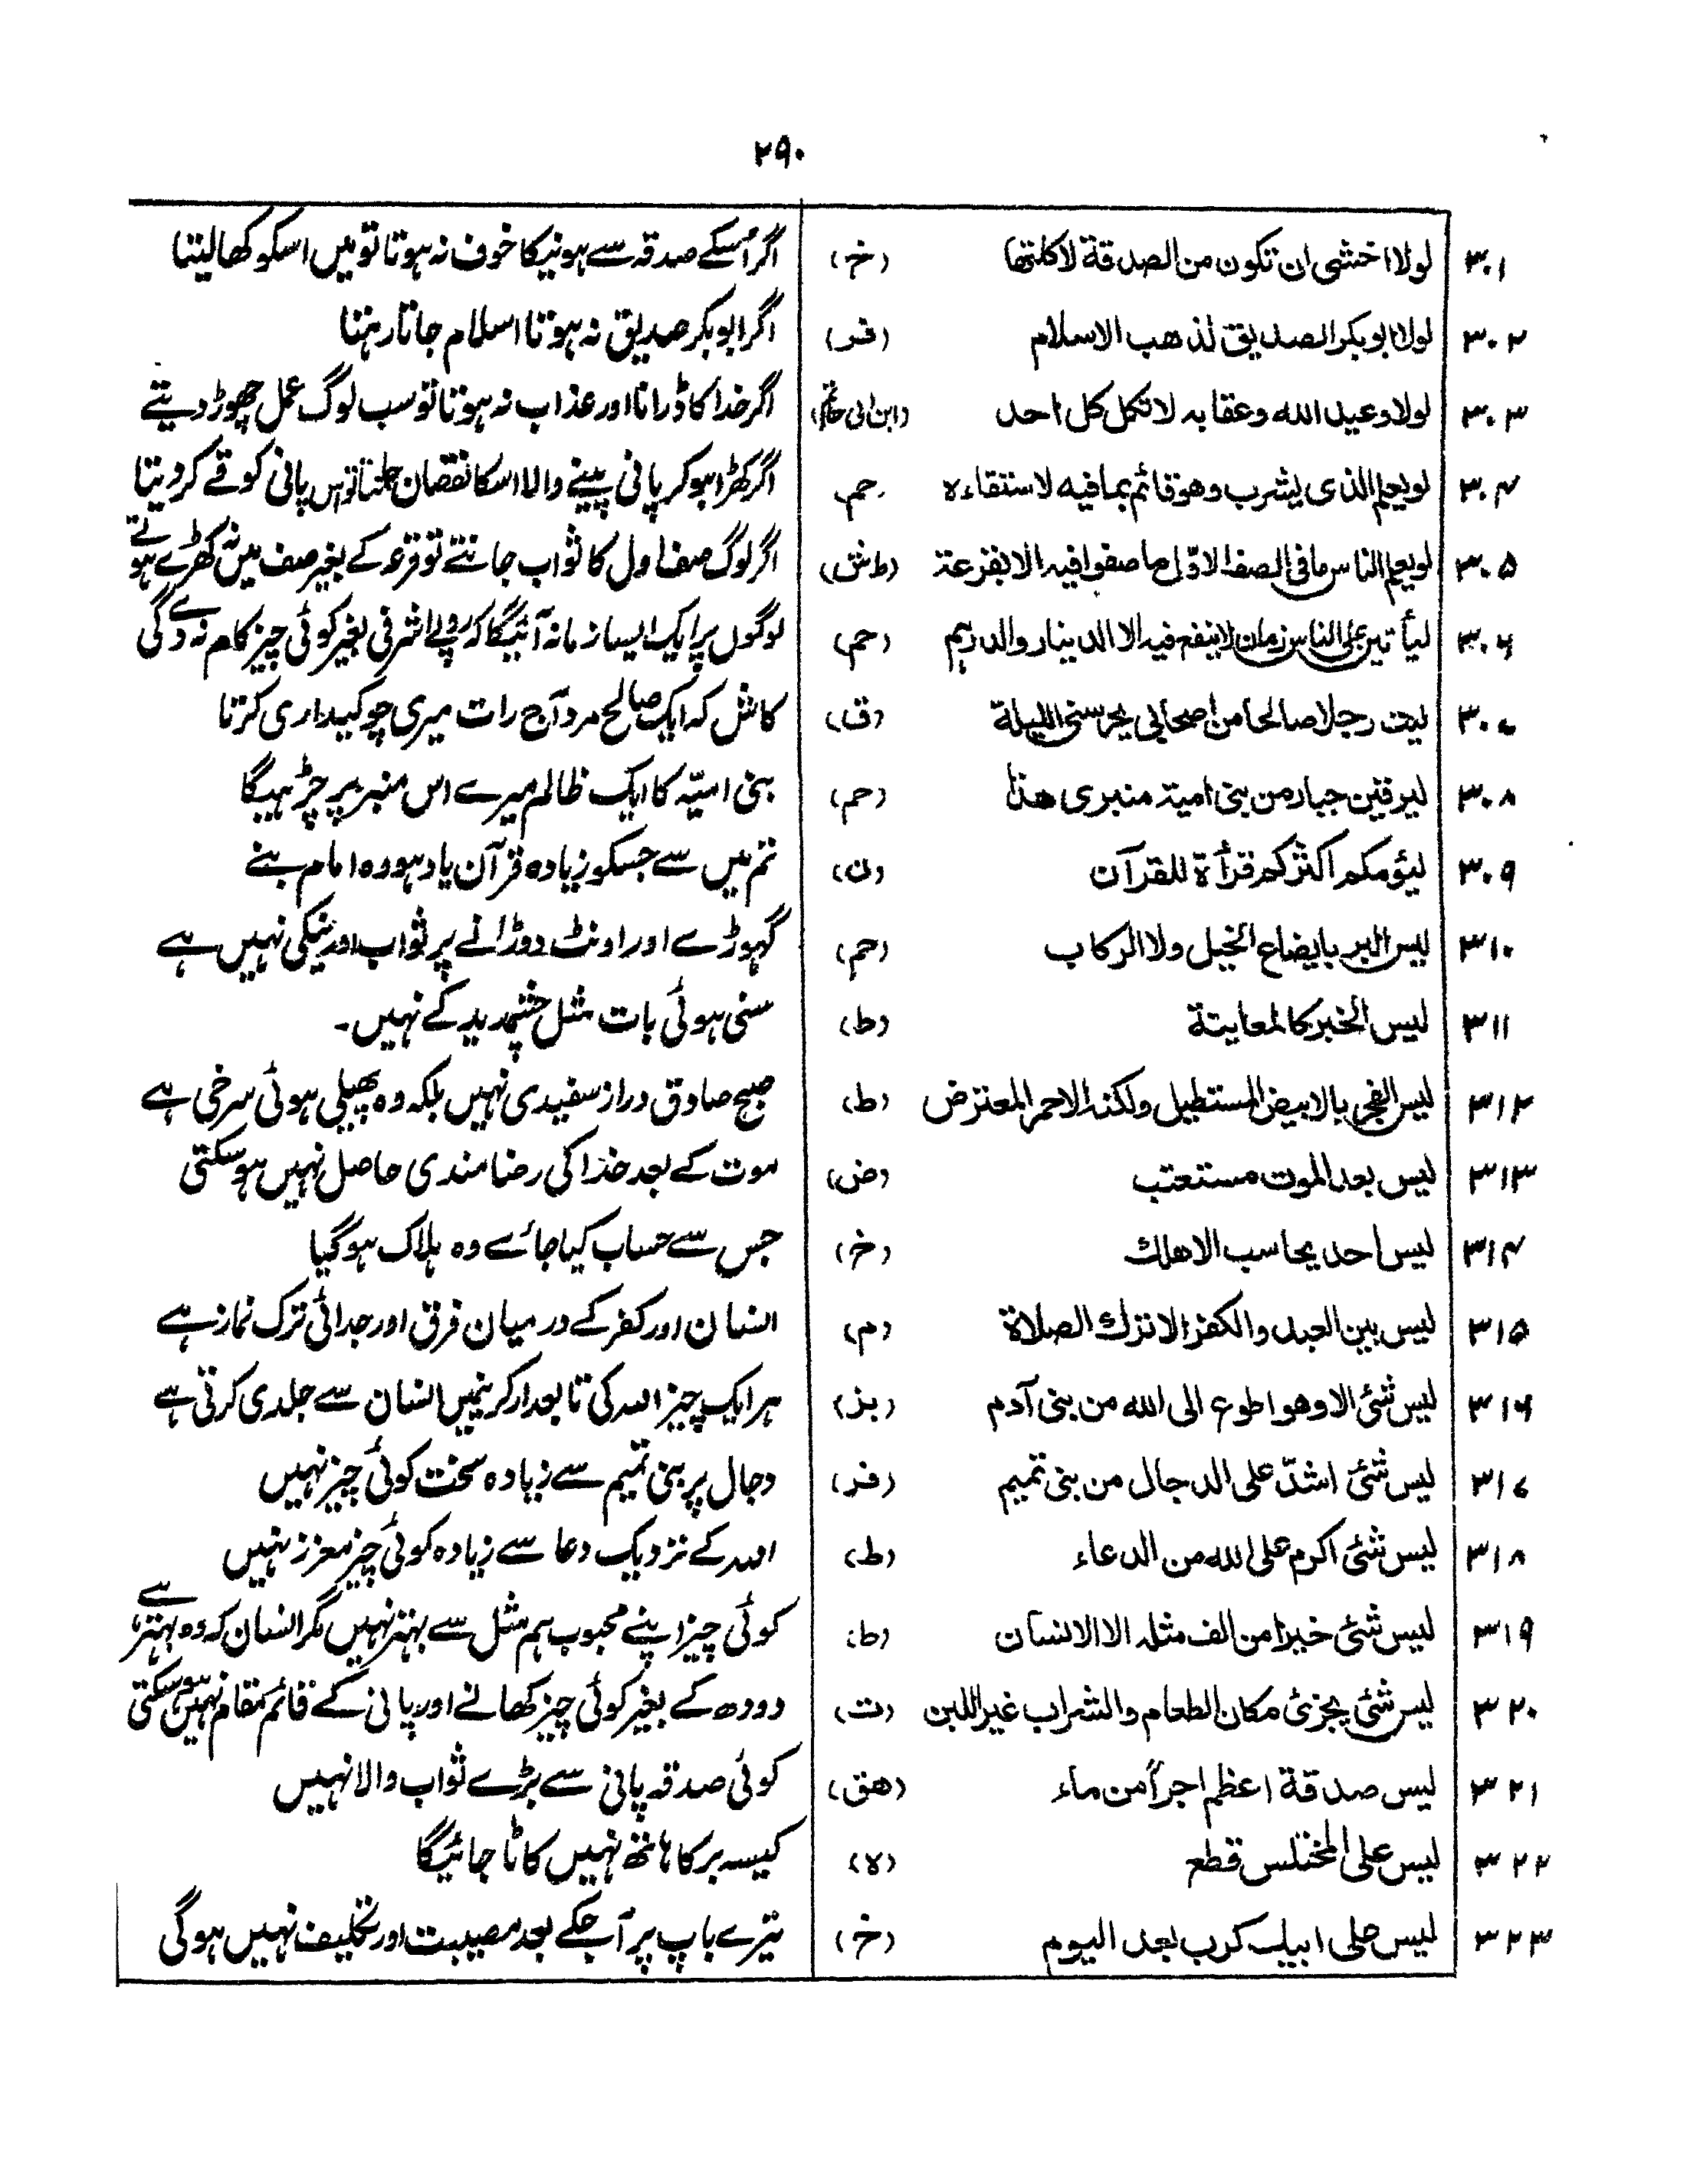 ۲۹۰
۳۰۱ لولا اخشی ان تکون من الصدقة لاکلتها (خ) اگر اُسکے صدقہ سے ہونیکا خوف نہ ہوتا تو میں اسکو کھا لیتا
۳۰۲ لولا ابو بکر الصدیق لذهب الاسلام (فر) اگر ابو بکر صدیق نہ ہوتا اسلام جاتا رہتا
۳۰۳ لولا وعید الله وعقابه لاتکل کل احد (ابن ابی حاتم) اگر خدا کا ڈرانا اور عذاب نہ ہوتا تو سب لوگ عمل چھوڑ دیتے
۳۰۴ لو یعلم الذی یشرب وهو قائم بما فیه لاستقاءه حم اگر کھڑا ہو کر پانی پینے والا اسکا نقصان جانتا تو اس پانی کو قے کر دیتا
۳۰۵ لو یعلم الناس ما فی الصف الاوّل ما صفوا فیه الا بقرعة (طش) اگر لوگ صف اول کا ثواب جانتے تو قرعہ کے بغیر صف میں نہ کھڑے ہوتے
۳۰۶ لیأتین علی الناس زمان لا ینفع فیه الا الدینار والدرہم (حم) لوگوں پر ایک ایسا زمانہ آئیگا کہ روپے اشرفی بغیر کوئی چیز کام نہ دے گی
۳۰۷ لیت رجلا صالحا من اصحابی یحرسنی اللیلة (ق) کاش کہ ایک صالح مرد آج رات میری چوکیداری کرتا
۳۰۸ لیرقین جبار من بنی امیة منبری هذا (حم) بنی امیّہ کا ایک ظالم میرے اس منبر پر چڑہیگا
۳۰۹ لیؤمکم اکثرکم قرأة للقرآن (ن) تم میں سے جسکو زیادہ قرآن یاد ہو وہ امام بنے
۳۱۰ لیس البر بایضاع الخیل ولا الرکاب (حم) گہوڑے اور اونٹ دوڑانے پر ثواب اور نیکی نہیں ہے
۳۱۱ لیس الخبر کالمعاینة (ط) سنی ہوئی بات مثل چشمدید کے نہیں۔
۳۱۲ لیس الفجر بالابیض المستطیل ولکنه الاحمر المعترض (ط) صبح صادق دراز سفیدی نہیں بلکہ وہ پھیلی ہوئی سرخی ہے
۳۱۳ لیس بعد الموت مستعتب (ض) موت کے بعد خدا کی رضا مندی حاصل نہیں ہو سکتی
۳۱۴ لیس احد یحاسب الا هلک (خ) جس سے حساب کیا جائے وہ ہلاک ہو گیا
۳۱۵ لیس بین العبد والکفر الا ترک الصلاة (م) انسان اور کفر کے درمیان فرق اور جدائی ترک نماز ہے
۳۱۶ لیس شئ الا وهو اطوع الی الله من بنی آدم (بز) ہر ایک چیز اللہ کی تابعدار کرنیمیں انسان سے جلدی کرتی ہے
۳۱۷ لیس شئ اشدّ علی الدجال من بنی تمیم (فر) دجال پر بنی تمیم سے زیادہ سخت کوئی چیز نہیں
۳۱۸ لیس شئ اکرم علی الله من الدعاء (ط) اللہ کے نزدیک دعا سے زیادہ کوئی چیز معزز نہیں
۳۱۹ لیس شئ خیرا من الف مثله الا الانسان (ط) کوئی چیز اپنے محبوب ہم مثل سے بہتر نہیں مگر انسان کہ وہ بہتر ہے
۳۲۰ لیس شئ یجزئ مکان الطعام والشراب غیر اللبن (ت) دودھ کے بغیر کوئی چیز کھانے اور پانی کے قائم مقام نہیں ہو سکتی
۳۲۱ لیس صدقة اعظم اجرا من ماء (هق) کوئی صدقہ پانی سے بڑے ثواب والا نہیں
۳۲۲ لیس علی المختلس قطع (ه) کیسہ بر کا ہاتھ نہیں کاٹا جائیگا
۳۲۳ لیس علی ابیک کرب بعد الیوم (خ) تیرے باپ پر آجکے بعد مصیبت اور تکلیف نہیں ہو گی